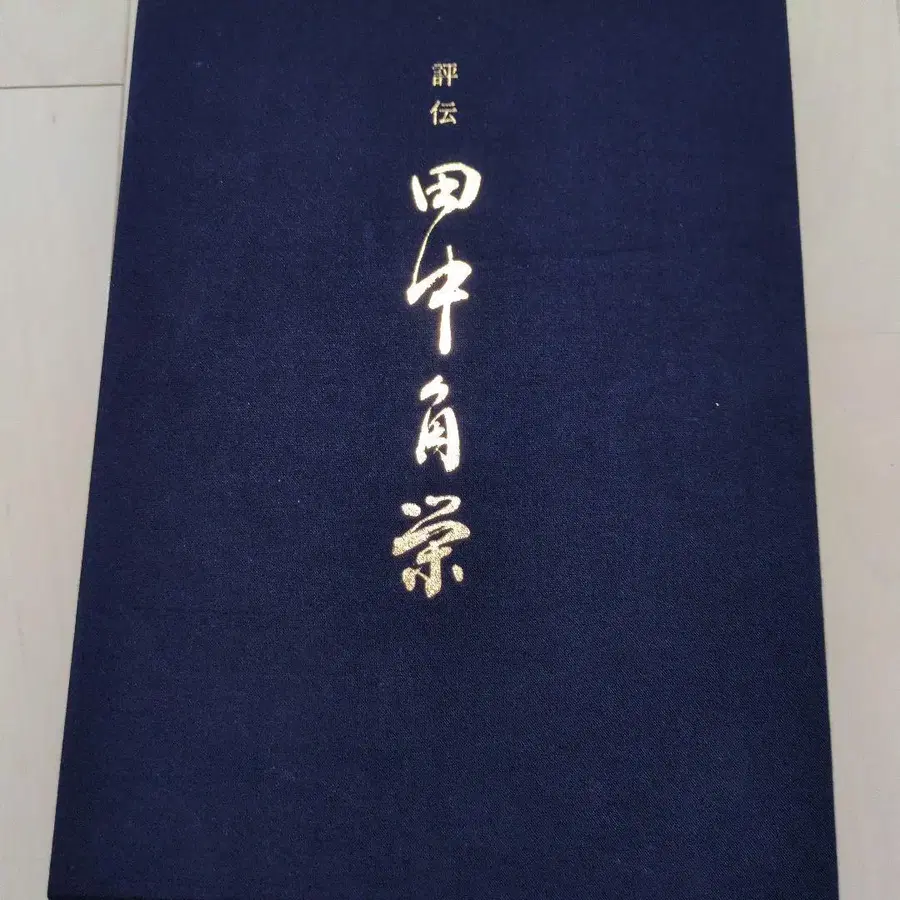 評伝
田中角栄